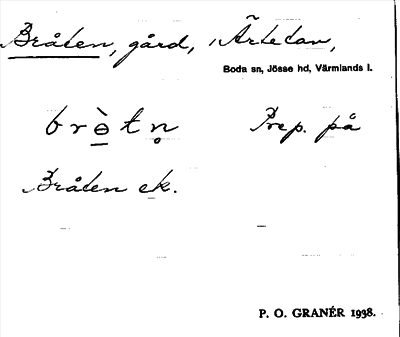 Bråten, gård, Ärtetan,
Boda sn, Jösse hd, Värmlands l.
brɵ̠̀tn̥ Prep. på
Bråten ek.
P. O. GRANÉR 1938.